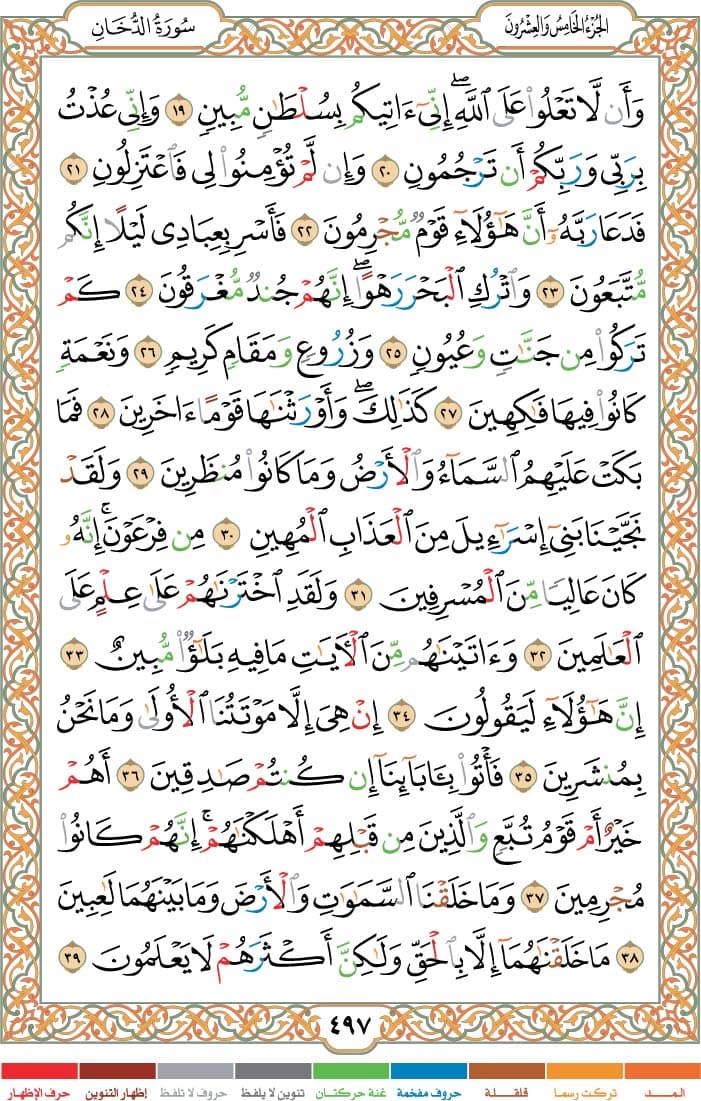 الجزء الخامس والعشرون
سورة الدخان
وَأَن لَّا تَعْلُوا۟ عَلَى ٱللَّهِ ۖ إِنِّىٓ ءَاتِيكُم بِسُلْطَـٰنٍ مُّبِينٍ ١٩ وَإِنِّى عُذْتُ
بِرَبِّى وَرَبِّكُمْ أَن تَرْجُمُونِ ٢٠ وَإِن لَّمْ تُؤْمِنُوا۟ لِى فَٱعْتَزِلُونِ ٢١
فَدَعَا رَبَّهُۥٓ أَنَّ هَـٰٓؤُلَآءِ قَوْمٌ مُّجْرِمُونَ ٢٢ فَأَسْرِ بِعِبَادِى لَيْلًا إِنَّكُم
مُّتَّبَعُونَ ٢٣ وَٱتْرُكِ ٱلْبَحْرَ رَهْوًا ۖ إِنَّهُمْ جُندٌ مُّغْرَقُونَ ٢٤ كَمْ
تَرَكُوا۟ مِن جَنَّـٰتٍ وَعُيُونٍ ٢٥ وَزُرُوعٍ وَمَقَامٍ كَرِيمٍ ٢٦ وَنَعْمَةٍ
كَانُوا۟ فِيهَا فَـٰكِهِينَ ٢٧ كَذَٰلِكَ ۖ وَأَوْرَثْنَـٰهَا قَوْمًا ءَاخَرِينَ ٢٨ فَمَا
بَكَتْ عَلَيْهِمُ ٱلسَّمَآءُ وَٱلْأَرْضُ وَمَا كَانُوا۟ مُنظَرِينَ ٢٩ وَلَقَدْ
نَجَّيْنَا بَنِىٓ إِسْرَٰٓءِيلَ مِنَ ٱلْعَذَابِ ٱلْمُهِينِ ٣٠ مِن فِرْعَوْنَ ۚ إِنَّهُۥ
كَانَ عَالِيًا مِّنَ ٱلْمُسْرِفِينَ ٣١ وَلَقَدِ ٱخْتَرْنَـٰهُمْ عَلَىٰ عِلْمٍ عَلَى
ٱلْعَـٰلَمِينَ ٣٢ وَءَاتَيْنَـٰهُم مِّنَ ٱلْـَٔايَـٰتِ مَا فِيهِ بَلَـٰٓؤٌا۟ مُّبِينٌ ٣٣
إِنَّ هَـٰٓؤُلَآءِ لَيَقُولُونَ ٣٤ إِنْ هِىَ إِلَّا مَوْتَتُنَا ٱلْأُولَىٰ وَمَا نَحْنُ
بِمُنشَرِينَ ٣٥ فَأْتُوا۟ بِـَٔابَآئِنَآ إِن كُنتُمْ صَـٰدِقِينَ ٣٦ أَهُمْ
خَيْرٌ أَمْ قَوْمُ تُبَّعٍ وَٱلَّذِينَ مِن قَبْلِهِمْ ۚ أَهْلَكْنَـٰهُمْ ۖ إِنَّهُمْ كَانُوا۟
مُجْرِمِينَ ٣٧ وَمَا خَلَقْنَا ٱلسَّمَـٰوَٰتِ وَٱلْأَرْضَ وَمَا بَيْنَهُمَا لَـٰعِبِينَ
٣٨ مَا خَلَقْنَـٰهُمَآ إِلَّا بِٱلْحَقِّ وَلَـٰكِنَّ أَكْثَرَهُمْ لَا يَعْلَمُونَ ٣٩
٤٩٧
المـــد تركت رسما قلقـلة حروف مفخمة غنة حركتان تنوين لا يلفظ حروف لا تلفظ إظهار التنوين حرف الإظهار